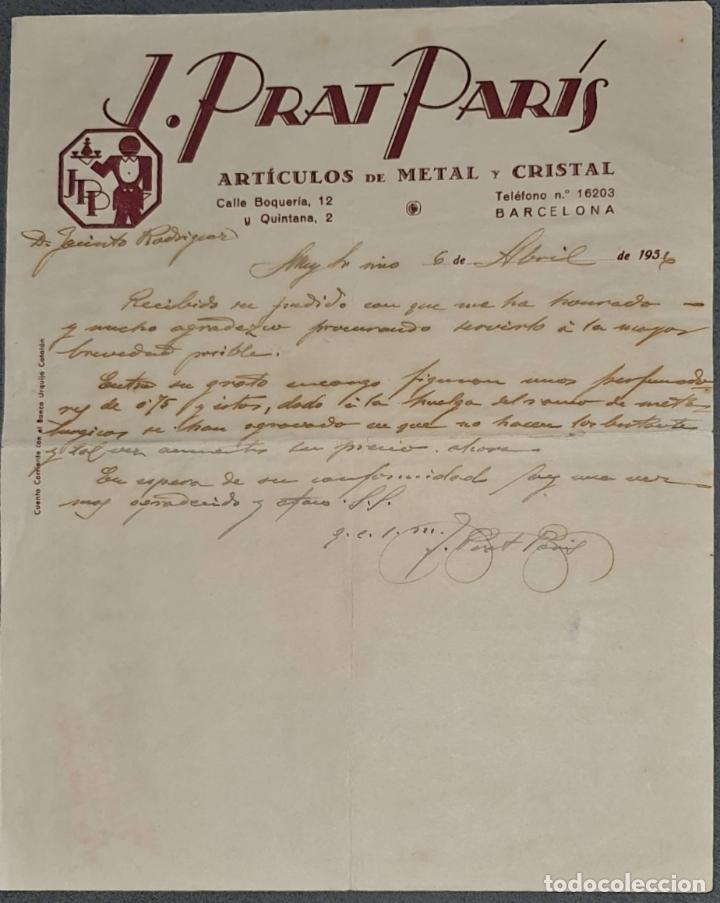 J. PRAT PARÍS
ARTÍCULOS DE METAL Y CRISTAL
Calle Boquería, 12
y Quintana, 2
Teléfono n.º 16203
BARCELONA
JPP
Dn Jacinto Rodriguez
Muy Sr mio 6 de Abril de 1936
Recibido su pedido con que me ha honrado
y mucho agradezco procurando servirlo á la mayor
brevedad posible.
Entre su grato encargo figuran unos perfumado-
res de 0'75 y estos, dado á la huelga del ramo de meta-
lurgicos se han agravado en que no hacen los bastante
y tal vez aumente su precio. ahora
En espera de su conformidad soy una vez
mas agradecido y S. S.
q. e. s. m. J. Prat París
Cuenta Corriente con el Banco Urquijo Catalán
todocoleccion.net